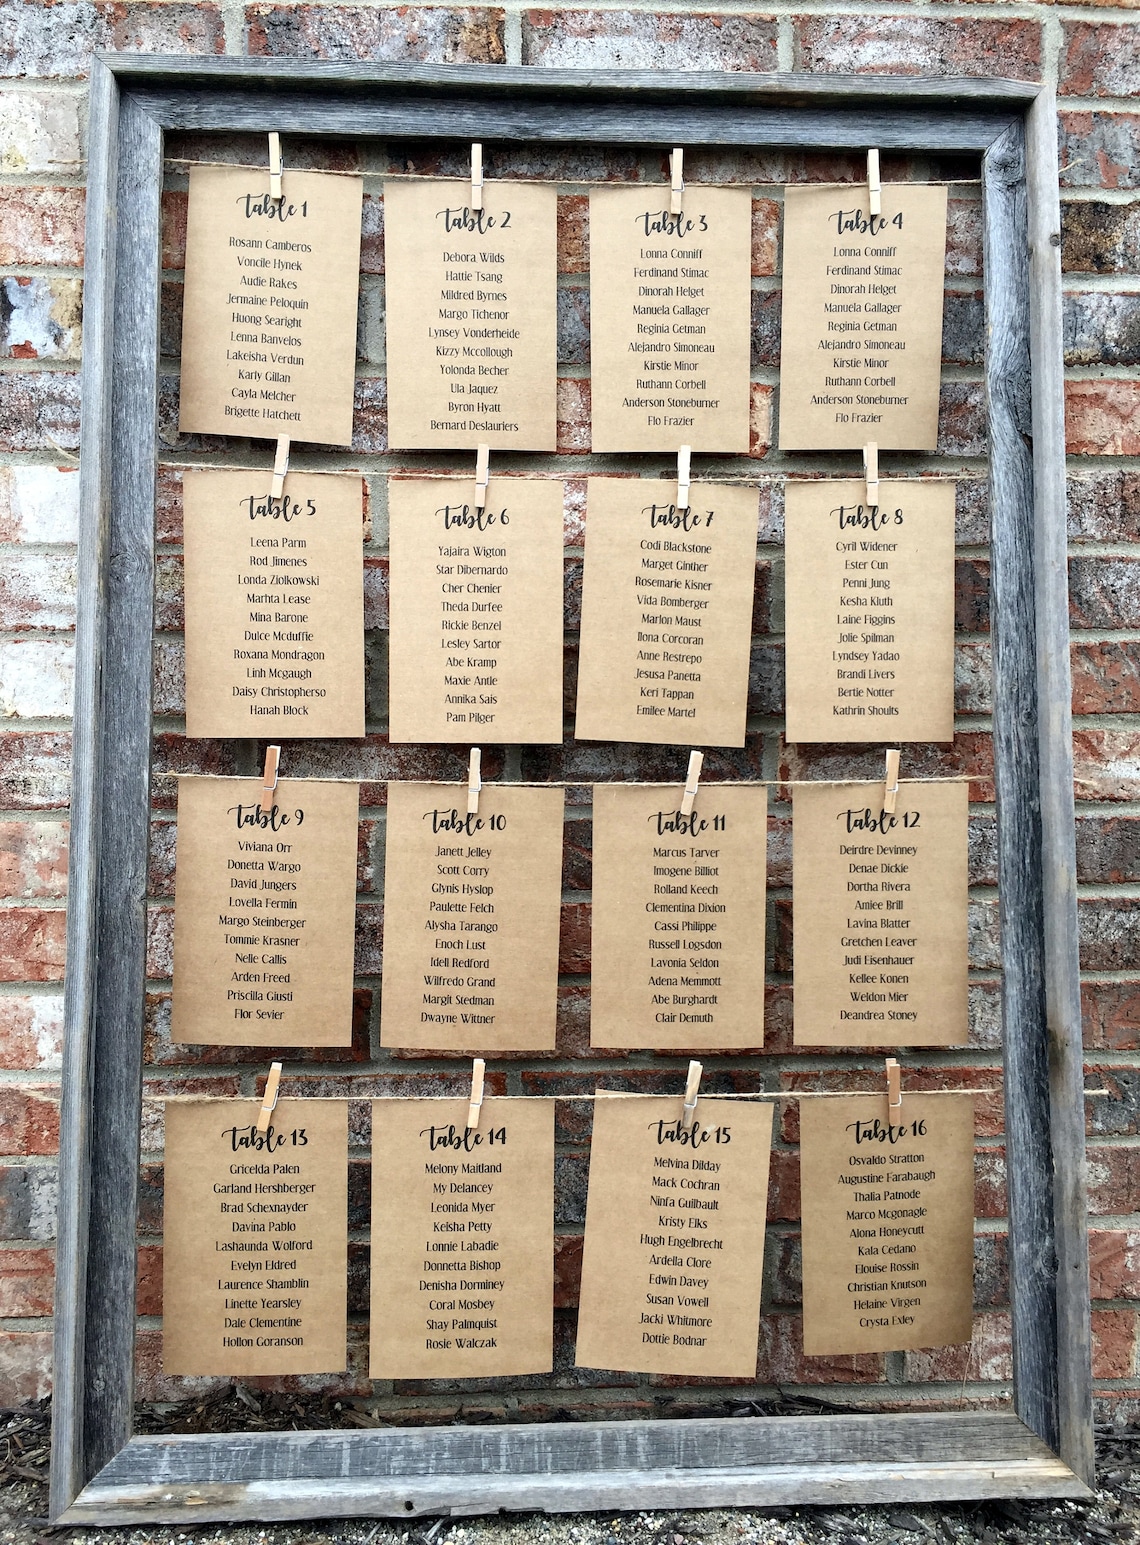 Table 1
Rosann Camberos
Voncile Hynek
Audie Rakes
Jermaine Peloquin
Huong Searight
Lenna Banvelos
Lakeisha Verdun
Karly Gillan
Cayla Melcher
Brigette Hatchett
Table 2
Debora Wilds
Hattie Tsang
Mildred Byrnes
Margo Tichenor
Lynsey Vonderheide
Kizzy Mccollough
Yolonda Becher
Ula Jaquez
Byron Hyatt
Bernard Deslauriers
Table 3
Lonna Conniff
Ferdinand Stimac
Dinorah Helget
Manuela Gallager
Reginia Getman
Alejandro Simoneau
Kirstie Minor
Ruthann Corbell
Anderson Stoneburner
Flo Frazier
Table 4
Lonna Conniff
Ferdinand Stimac
Dinorah Helget
Manuela Gallager
Reginia Getman
Alejandro Simoneau
Kirstie Minor
Ruthann Corbell
Anderson Stoneburner
Flo Frazier
Table 5
Leena Parm
Rod Jimenes
Londa Ziolkowski
Marhta Lease
Mina Barone
Dulce Mcduffie
Roxana Mondragon
Linh Mcgaugh
Daisy Christopherso
Hanah Block
Table 6
Yajaira Wigton
Star Dibernardo
Cher Chenier
Theda Durfee
Rickie Benzel
Lesley Sartor
Abe Kramp
Maxie Antle
Annika Sais
Pam Pilger
Table 7
Codi Blackstone
Marget Ginther
Rosemarie Kisner
Vida Bomberger
Marlon Maust
Ilona Corcoran
Anne Restrepo
Jesusa Panetta
Keri Tappan
Emilee Martel
Table 8
Cyril Widener
Ester Cun
Penni Jung
Kesha Kluth
Laine Figgins
Jolie Spilman
Lyndsey Yadao
Brandi Livers
Bertie Notter
Kathrin Shoults
Table 9
Viviana Orr
Donetta Wargo
David Jungers
Lovella Fermin
Margo Steinberger
Tommie Krasner
Nelie Callis
Arden Freed
Priscilla Giusti
Flor Sevier
Table 10
Janett Jelley
Scott Corry
Glynis Hyslop
Paulette Felch
Alysha Tarango
Enoch Lust
Idell Redford
Wilfredo Grand
Margit Stedman
Dwayne Wittner
Table 11
Marcus Tarver
Imogene Billiot
Rolland Keech
Clementina Dixion
Cassi Philippe
Russell Logsdon
Lavonia Seldon
Adena Memmott
Abe Burghardt
Clair Demuth
Table 12
Deirdre Devinney
Denae Dickie
Dortha Rivera
Amiee Brill
Lavina Blatter
Gretchen Leaver
Judi Eisenhauer
Kellee Konen
Weldon Mier
Deandrea Stoney
Table 13
Gricelda Palen
Garland Hershberger
Brad Schexnayder
Davina Pablo
Lashaunda Wolford
Evelyn Eldred
Laurence Shamblin
Linette Yearsley
Dale Clementine
Hollon Goranson
Table 14
Melony Maitland
My Delancey
Leonida Myer
Keisha Petty
Lonnie Labadie
Donnetta Bishop
Denisha Dorminey
Coral Mosbey
Shay Palmquist
Rosie Walczak
Table 15
Melvina Dilday
Mack Cochran
Ninfa Guilbault
Kristy Elks
Hugh Engelbrecht
Ardella Clore
Edwin Davey
Susan Vowell
Jacki Whitmore
Dottie Bodnar
Table 16
Osvaldo Stratton
Augustine Farabaugh
Thalia Patnode
Marco Mcgonagle
Alona Honeycutt
Kala Cedano
Elouise Rossin
Christian Knutson
Helaine Virgen
Crysta Exley